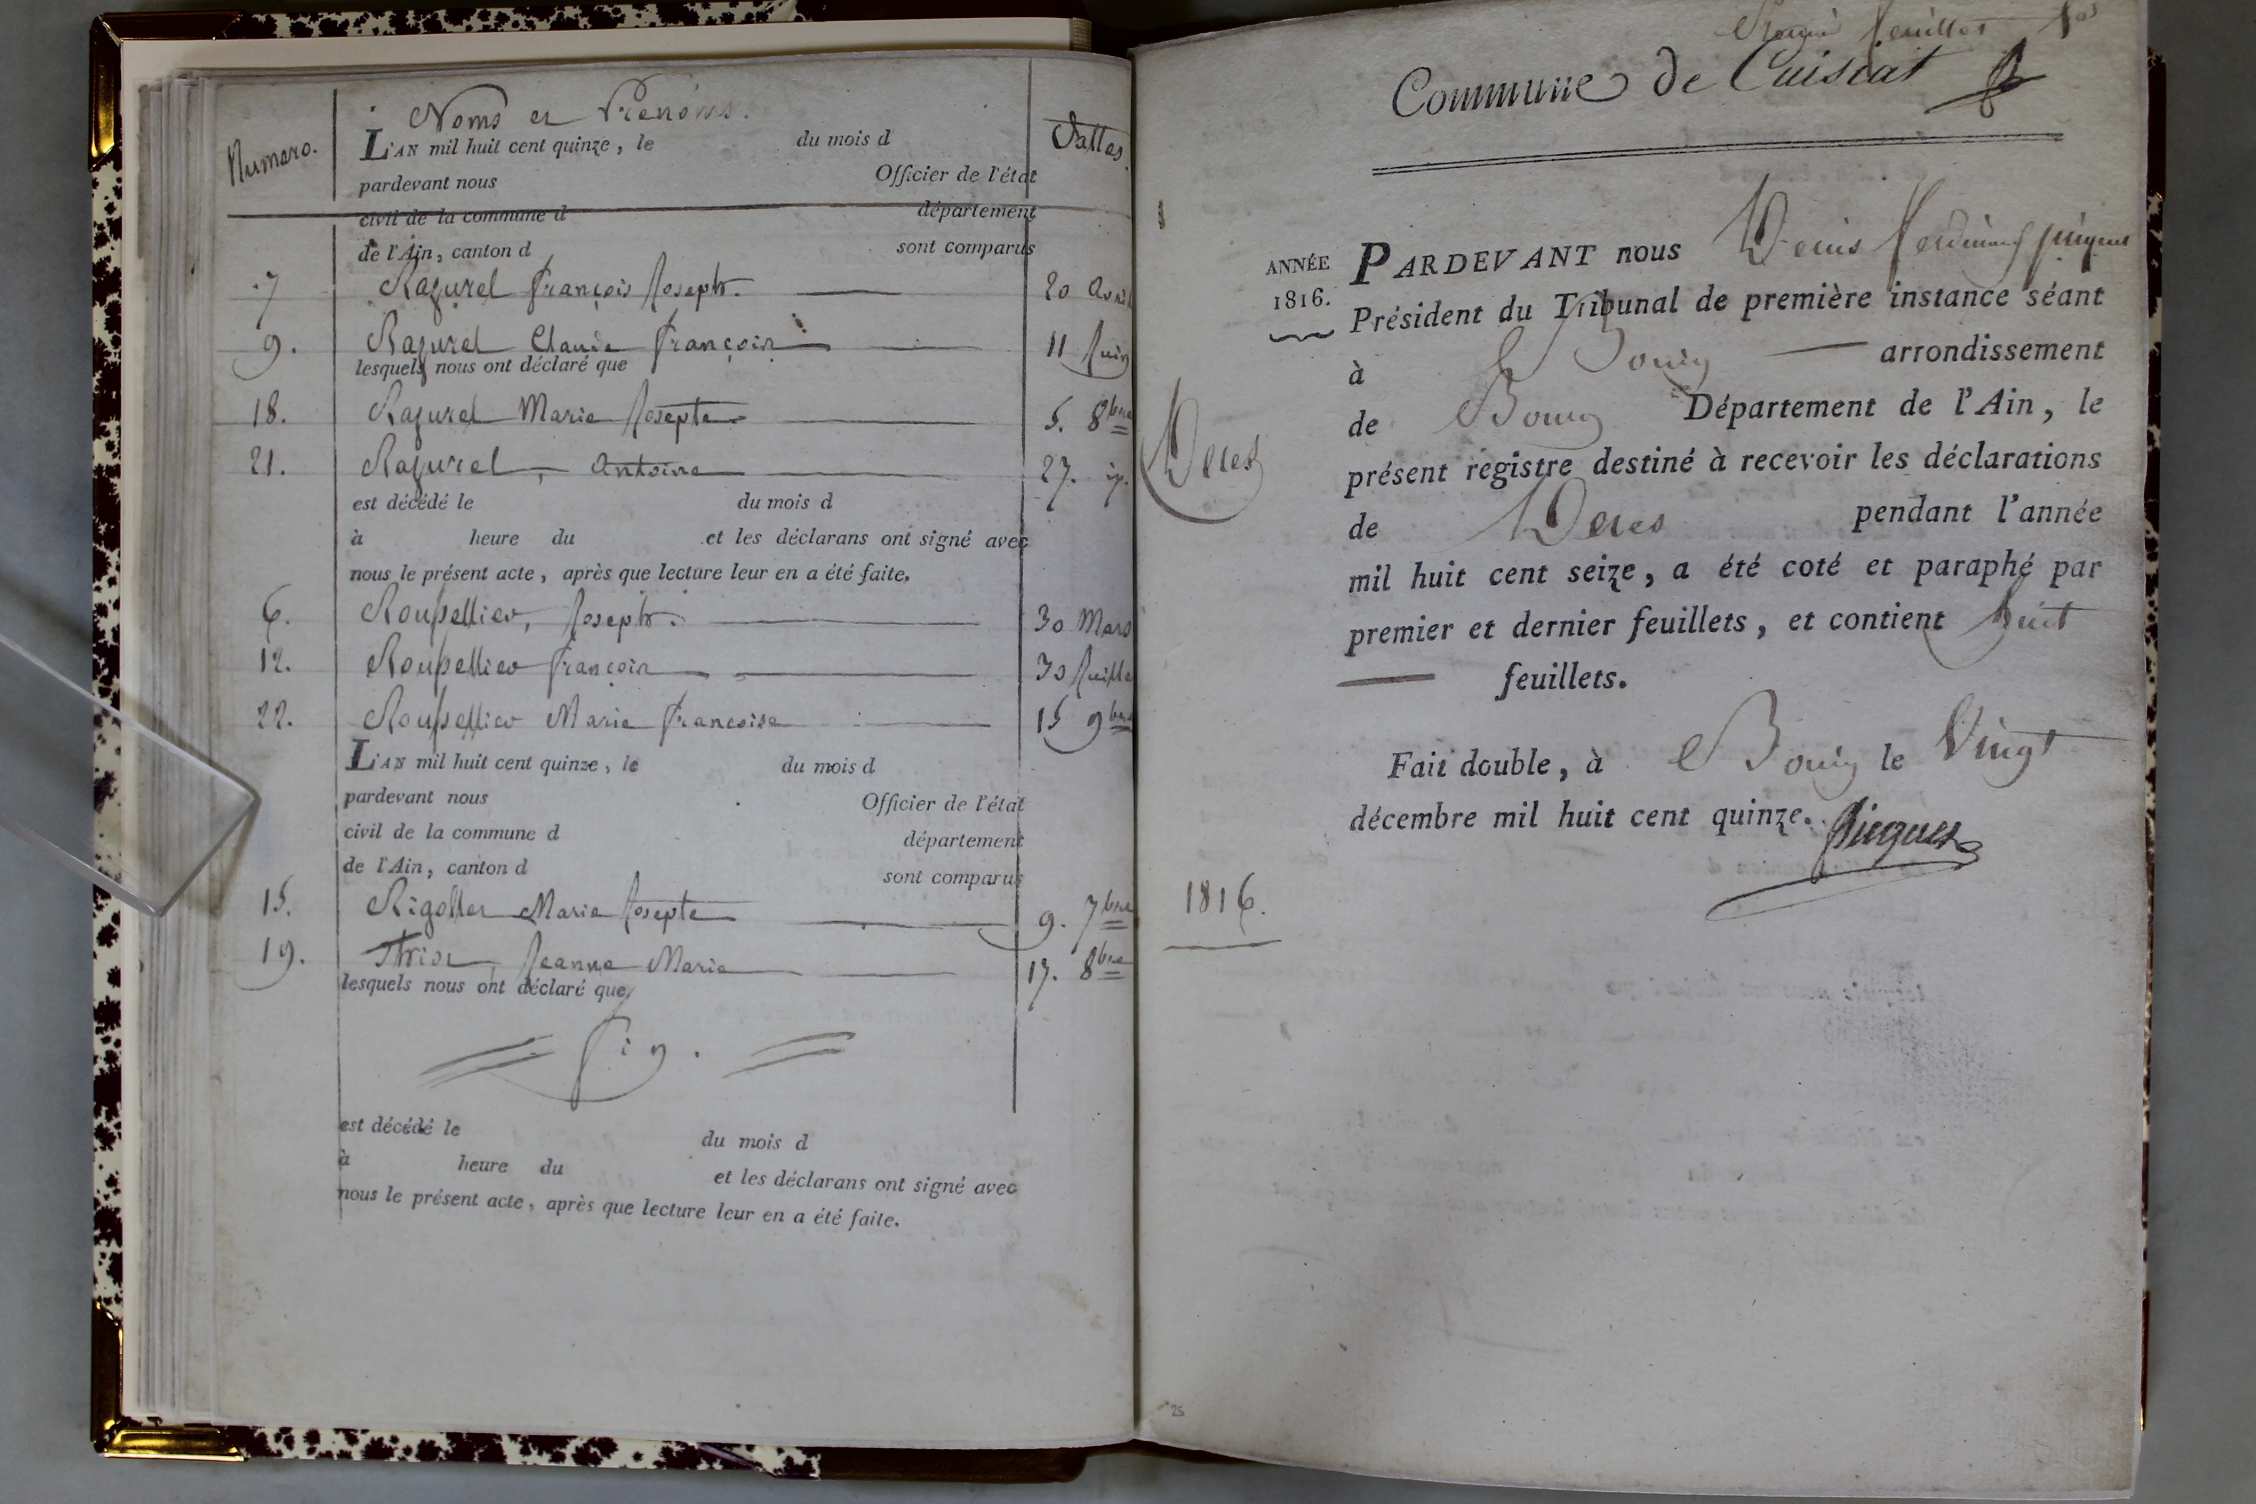 Numero.
Noms et Prenoms.
Dattes.
L'AN mil huit cent quinze, le du mois d
pardevant nous Officier de l'état
civil de la commune d département
de l'Ain, canton d sont comparus
7 Razurel François Joseph. 20 Avril
9. Razurel Claude François 11 Juin
lesquels nous ont déclaré que
18. Razurel Marie Josepte 5. 8bre
21. Razurel, Antoine 27.
est décédé le du mois d
à heure du et les déclarans ont signé avec
nous le présent acte, après que lecture leur en a été faite.
6. Joseph. 30 Mars
12. François 30
22. Marie Françoise 15 9bre
L'AN mil huit cent quinze, le du mois d
pardevant nous Officier de l'état
civil de la commune d département
de l'Ain, canton d sont comparus
15. Marie Josepte 9. 7bre
19. Jeanne Marie 17. 8bre
lesquels nous ont déclaré que
Fin.
est décédé le du mois d
à heure du et les déclarans ont signé avec
nous le présent acte, après que lecture leur en a été faite.
feuillet
Commune de Cuisiat
ANNÉE
1816.
PARDEVANT nous Denis Ferdinand
Président du Tribunal de première instance séant
à Bourg arrondissement
de Bourg Département de l'Ain, le
Deces
présent registre destiné à recevoir les déclarations
de Deces pendant l'année
mil huit cent seize, a été coté et paraphé par
premier et dernier feuillets, et contient huit
feuillets.
Fait double, à Bourg le Vingt
décembre mil huit cent quinze.
1816.
25